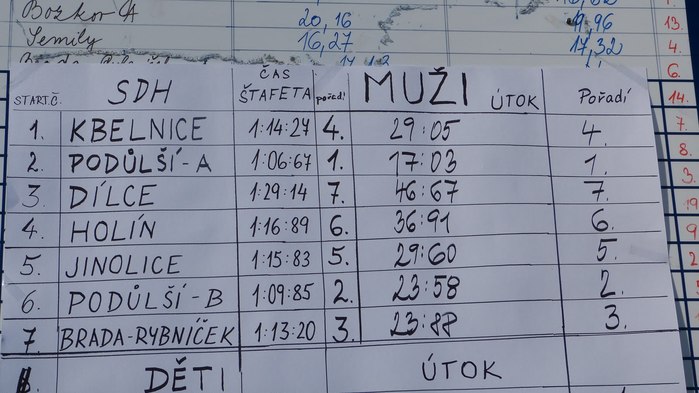 Bozkov A 20,16 9,96 13.
Semily 16,27 17,32 4.
START.Č. SDH ČAS ŠTAFETA pořadí MUŽI ÚTOK Pořadí
1. KBELNICE 1:14:27 4. 29:05 4.
2. PODŮLŠÍ-A 1:06:67 1. 17:03 1.
3. DÍLCE 1:29:14 7. 46:67 7.
4. HOLÍN 1:16:89 6. 36:91 6.
5. JINOLICE 1:15:83 5. 29:60 5.
6. PODŮLŠÍ-B 1:09:85 2. 23:58 2.
7. BRADA-RYBNÍČEK 1:13:20 3. 23:88 3.
DĚTI ÚTOK
6.
14.
7.
8.
3.
9
2